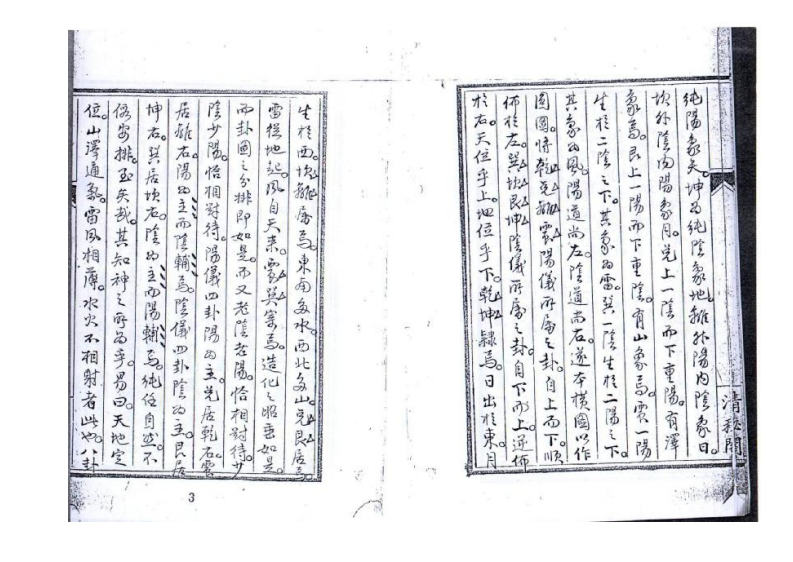 純陽象天。坤為純陰象地。離外陽內陰象日。
坎外陰內陽象月。兌上一陰而下重陽。有澤
象焉。艮上一陽而下重陰。有山象焉。震一陽
生於二陰之下。其象為雷。巽一陰生於二陽之下。
其象為風。陽道尚左。陰道尚右。遂本橫圖以作
圓圖。將乾兌離震陽儀所屬之卦。自上而下。順
佈於左。巽坎艮坤陰儀所屬之卦。自下而上。逆佈
於右。天位乎上。地位乎下。乾坤隸焉。日出於東。月
清秘閣
生於西。坎離屬焉。東南多水。西北多山。兌艮居焉。
雷從地起。風自天來。震巽寄焉。造化之昭垂如是。
而卦圖之分排即如是。而又老陰老陽。恰相對待。少
陰少陽。恰相對待。陽儀四卦陽為主。兌居乾右。震
居離右。陽為主而陰輔焉。陰儀四卦陰為主。艮居
坤右。巽居坎右。陰為主而陽輔焉。純任自然。不
假安排。至矣哉。其知神之所為乎。易曰。天地定
位。山澤通氣。雷風相薄。水火不相射者此也。八卦
3